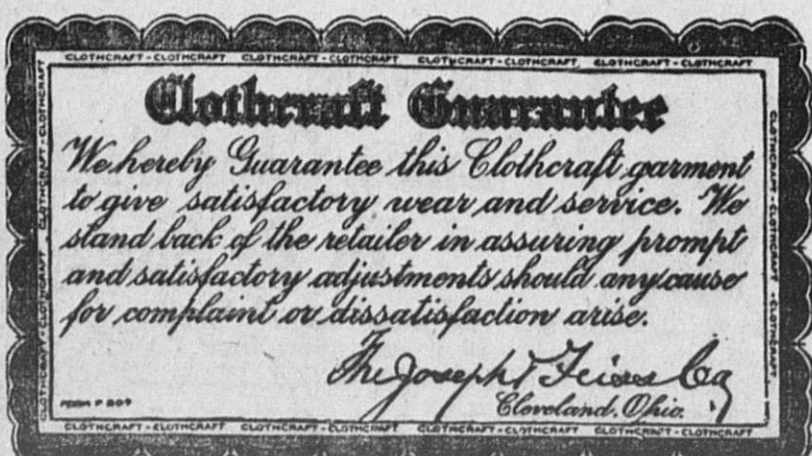 CLOTHCRAFT - CLOTHCRAFT CLOTHCRAFT - CLOTHCRAFT CLOTHCRAFT - CLOTHCRAFT CLOTHCRAFT - CLOTHCRAFT
Clothcraft Guarantee
We hereby Guarantee this Clothcraft garment
to give satisfactory wear and service. We
stand back of the retailer in assuring prompt
and satisfactory adjustments should any cause
for complaint or dissatisfaction arise.
The Joseph & Feiss Co
Cleveland, Ohio.
FORM P 809
CLOTHCRAFT - CLOTHCRAFT CLOTHCRAFT - CLOTHCRAFT CLOTHCRAFT - CLOTHCRAFT CLOTHCRAFT - CLOTHCRAFT